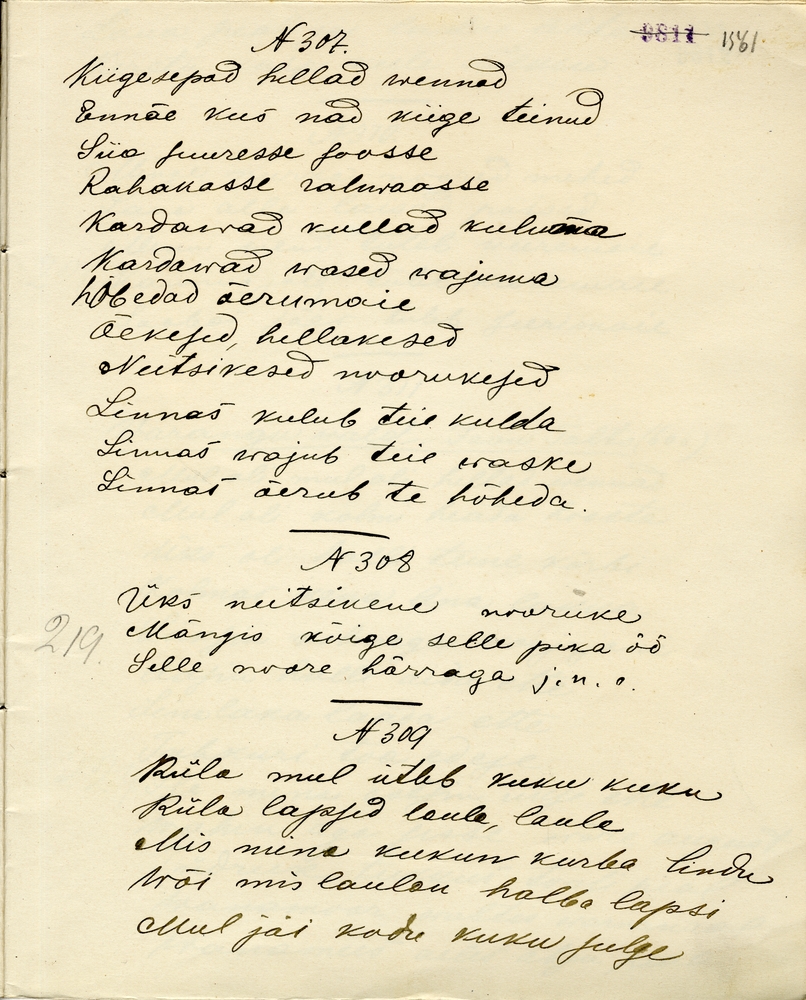 N 307.
9811 1561
Kiigesepad hellad wennad
Ennäe kus nad kiige teinud
Siia suuresse soosse
Rahakasse rahwaasse
Kardawad kullad kuluma
Kardawad wased wajuma
hõbedad äerumaie
Õekesed, hellakesed
Neitsikesed noorukesed
Linnas kulub teie kulda
Linnas wajub teie waske
Linnas äerub te hõbeda.
N 308
Üks neitsikene nooruke
219. Mängis kõige selle pika öö
Selle noore härraga j. n. e.
N 309
Küla mul ütleb kuku kuku
Küla lapsed laula, laula
Mis mina kukun kurba lindu
Wõi mis laulan halba lapsi
Mul jäi kodu kuku sulge